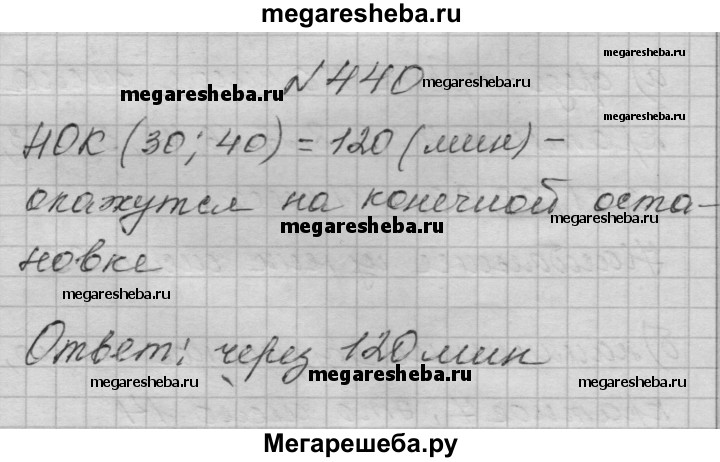 megaresheba.ru
megaresheba.ru
№440
megaresheba.ru
megaresheba.ru
НОК (30; 40) = 120 (мин) –
окажутся на конечной оста-
megaresheba.ru
megaresheba.ru
новке
megaresheba.ru
Ответ: через 120 мин
megaresheba.ru
megaresheba.ru
megaresheba.ru
Мегарешеба.ру